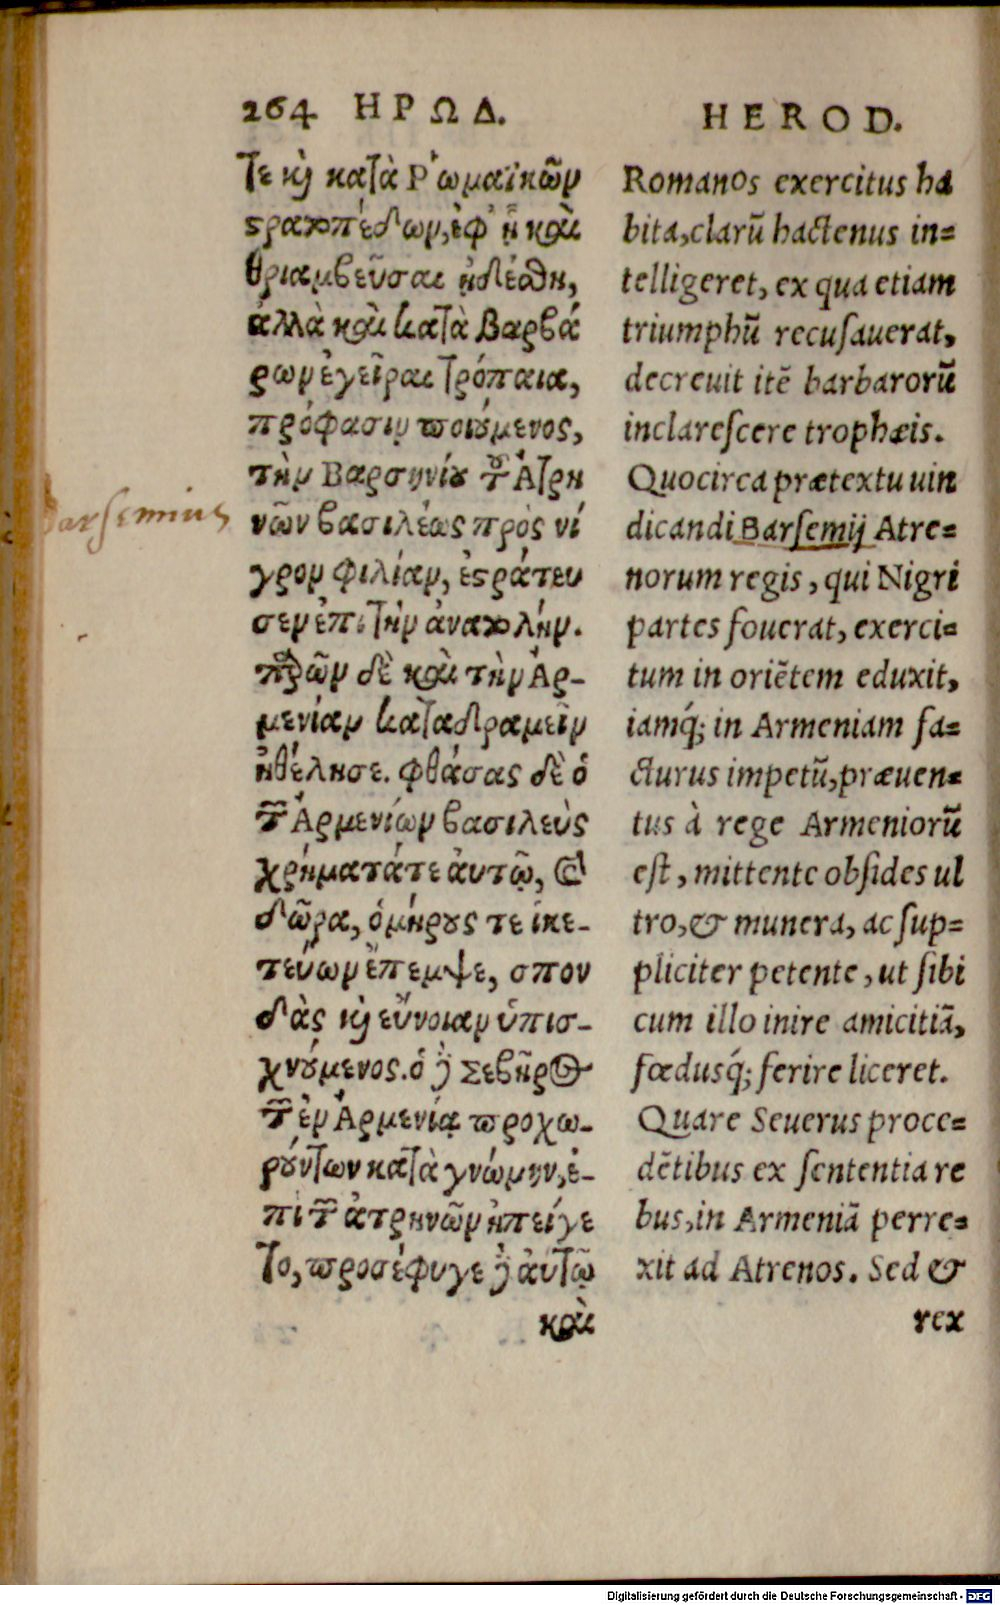 264 ΗΡΩΔ.
τε καὶ κατὰ Ῥωμαϊκῶν
στρατοπέδων, ἐφ' ᾗ καὶ
θριαμβεῦσαι ᾐδέσθη,
ἀλλὰ καὶ κατὰ Βαρβά
ρων ἐγεῖραι τρόπαια,
πρόφασιν ποιούμενος,
τὴν Βαρσηνίου τοῦ Ἀτρη
νῶν βασιλέως πρὸς νί
γρον φιλίαν, ἐστράτευ
σεν ἐπὶ τὴν ἀνατολήν.
δὲ καὶ τὴν Ἀρ-
μενίαν καταδραμεῖν
ἠθέλησε. φθάσας δὲ ὁ
τῶν Ἀρμενίων βασιλεὺς
χρήματά τε ἀυτῷ, καὶ
δῶρα, ὁμήρους τε ἱκε-
τεύων ἔπεμψε, σπον
δὰς καὶ εὔνοιαν ὑπισ-
χνούμενος. ὁ δὲ Σεβῆρος
τῶν ἐν Ἀρμενίᾳ προχω-
ρούντων κατὰ γνώμην, ἐ-
πὶ τῶν ἀτρηνῶν ἠπείγε
το, προσέφυγε δὲ ἀυτῷ
καὶ
HEROD.
Romanos exercitus ha
bita, clarũ hactenus in=
telligeret, ex qua etiam
triumphũ recuſauerat,
decreuit itẽ barbarorũ
inclareſcere trophæis.
Quocirca prætextu uin
dicandi Barſemij Atre=
norum regis, qui Nigri
partes fouerat, exerci=
tum in oriẽtem eduxit,
iamq́; in Armeniam fa=
cturus impetũ, præuen=
tus à rege Armeniorũ
eſt, mittente obſides ul
tro, & munera, ac ſup=
pliciter petente, ut ſibi
cum illo inire amicitiã,
fœdusq́; ferire liceret.
Quare Seuerus proce=
dẽtibus ex ſententia re
bus, in Armeniã perre=
xit ad Atrenos. Sed &
rex
Barſemius
Digitalisierung gefördert durch die Deutsche Forschungsgemeinschaft - DFG